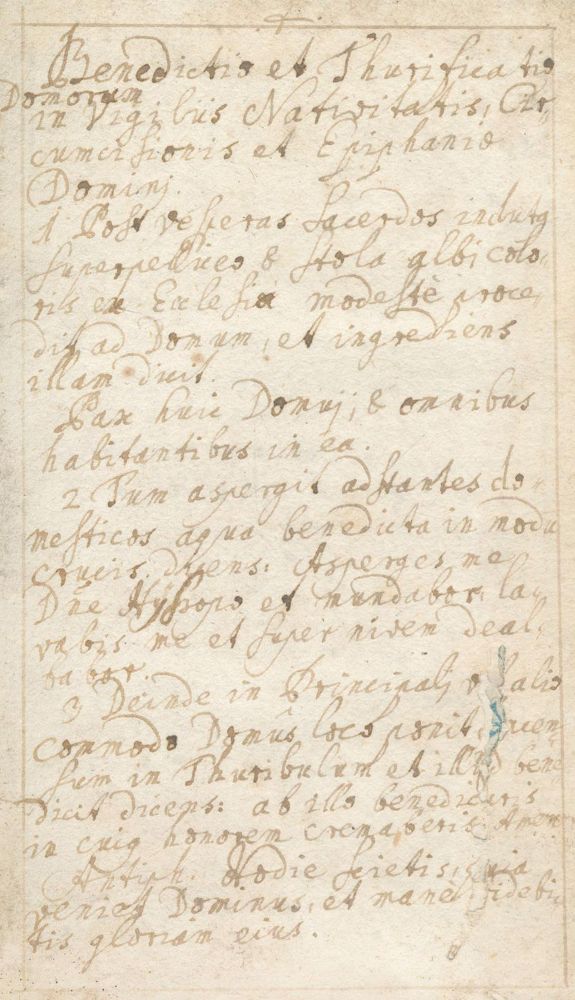 Benedictio et Thurificatio
Domorum
in Vigiliis Nativitatis, Cir,
cumcisionis et Epiphaniæ
Dominj.
1 Post vesperas Sacerdos indutq
superpelliceo & stola albi colo,
ris ex Ecclesia modestè proce,
dit ad Domum, et ingrediens
illam dicit.
Pax huic Domuj, & omnibus
habitantibus in ea.
2 Tum aspergit adstantes do,
mesticos aqua benedicta in modū
crucis dicens: Asperges me
Dñe Hyssopo et mundabor, la,
vabis me et super nivem deal,
babor.
3 Deinde in Principalj vel alio
commodo Domûs loco ponit incen
sum in Thuribulum et illud bene
dicit dicens: ab illo benedicaris
in cuiq honorem cremaberis Amen
Antiph. Hodie scietis, quia
veniet Dominus, et mane videbi,
tis gloriam eius.